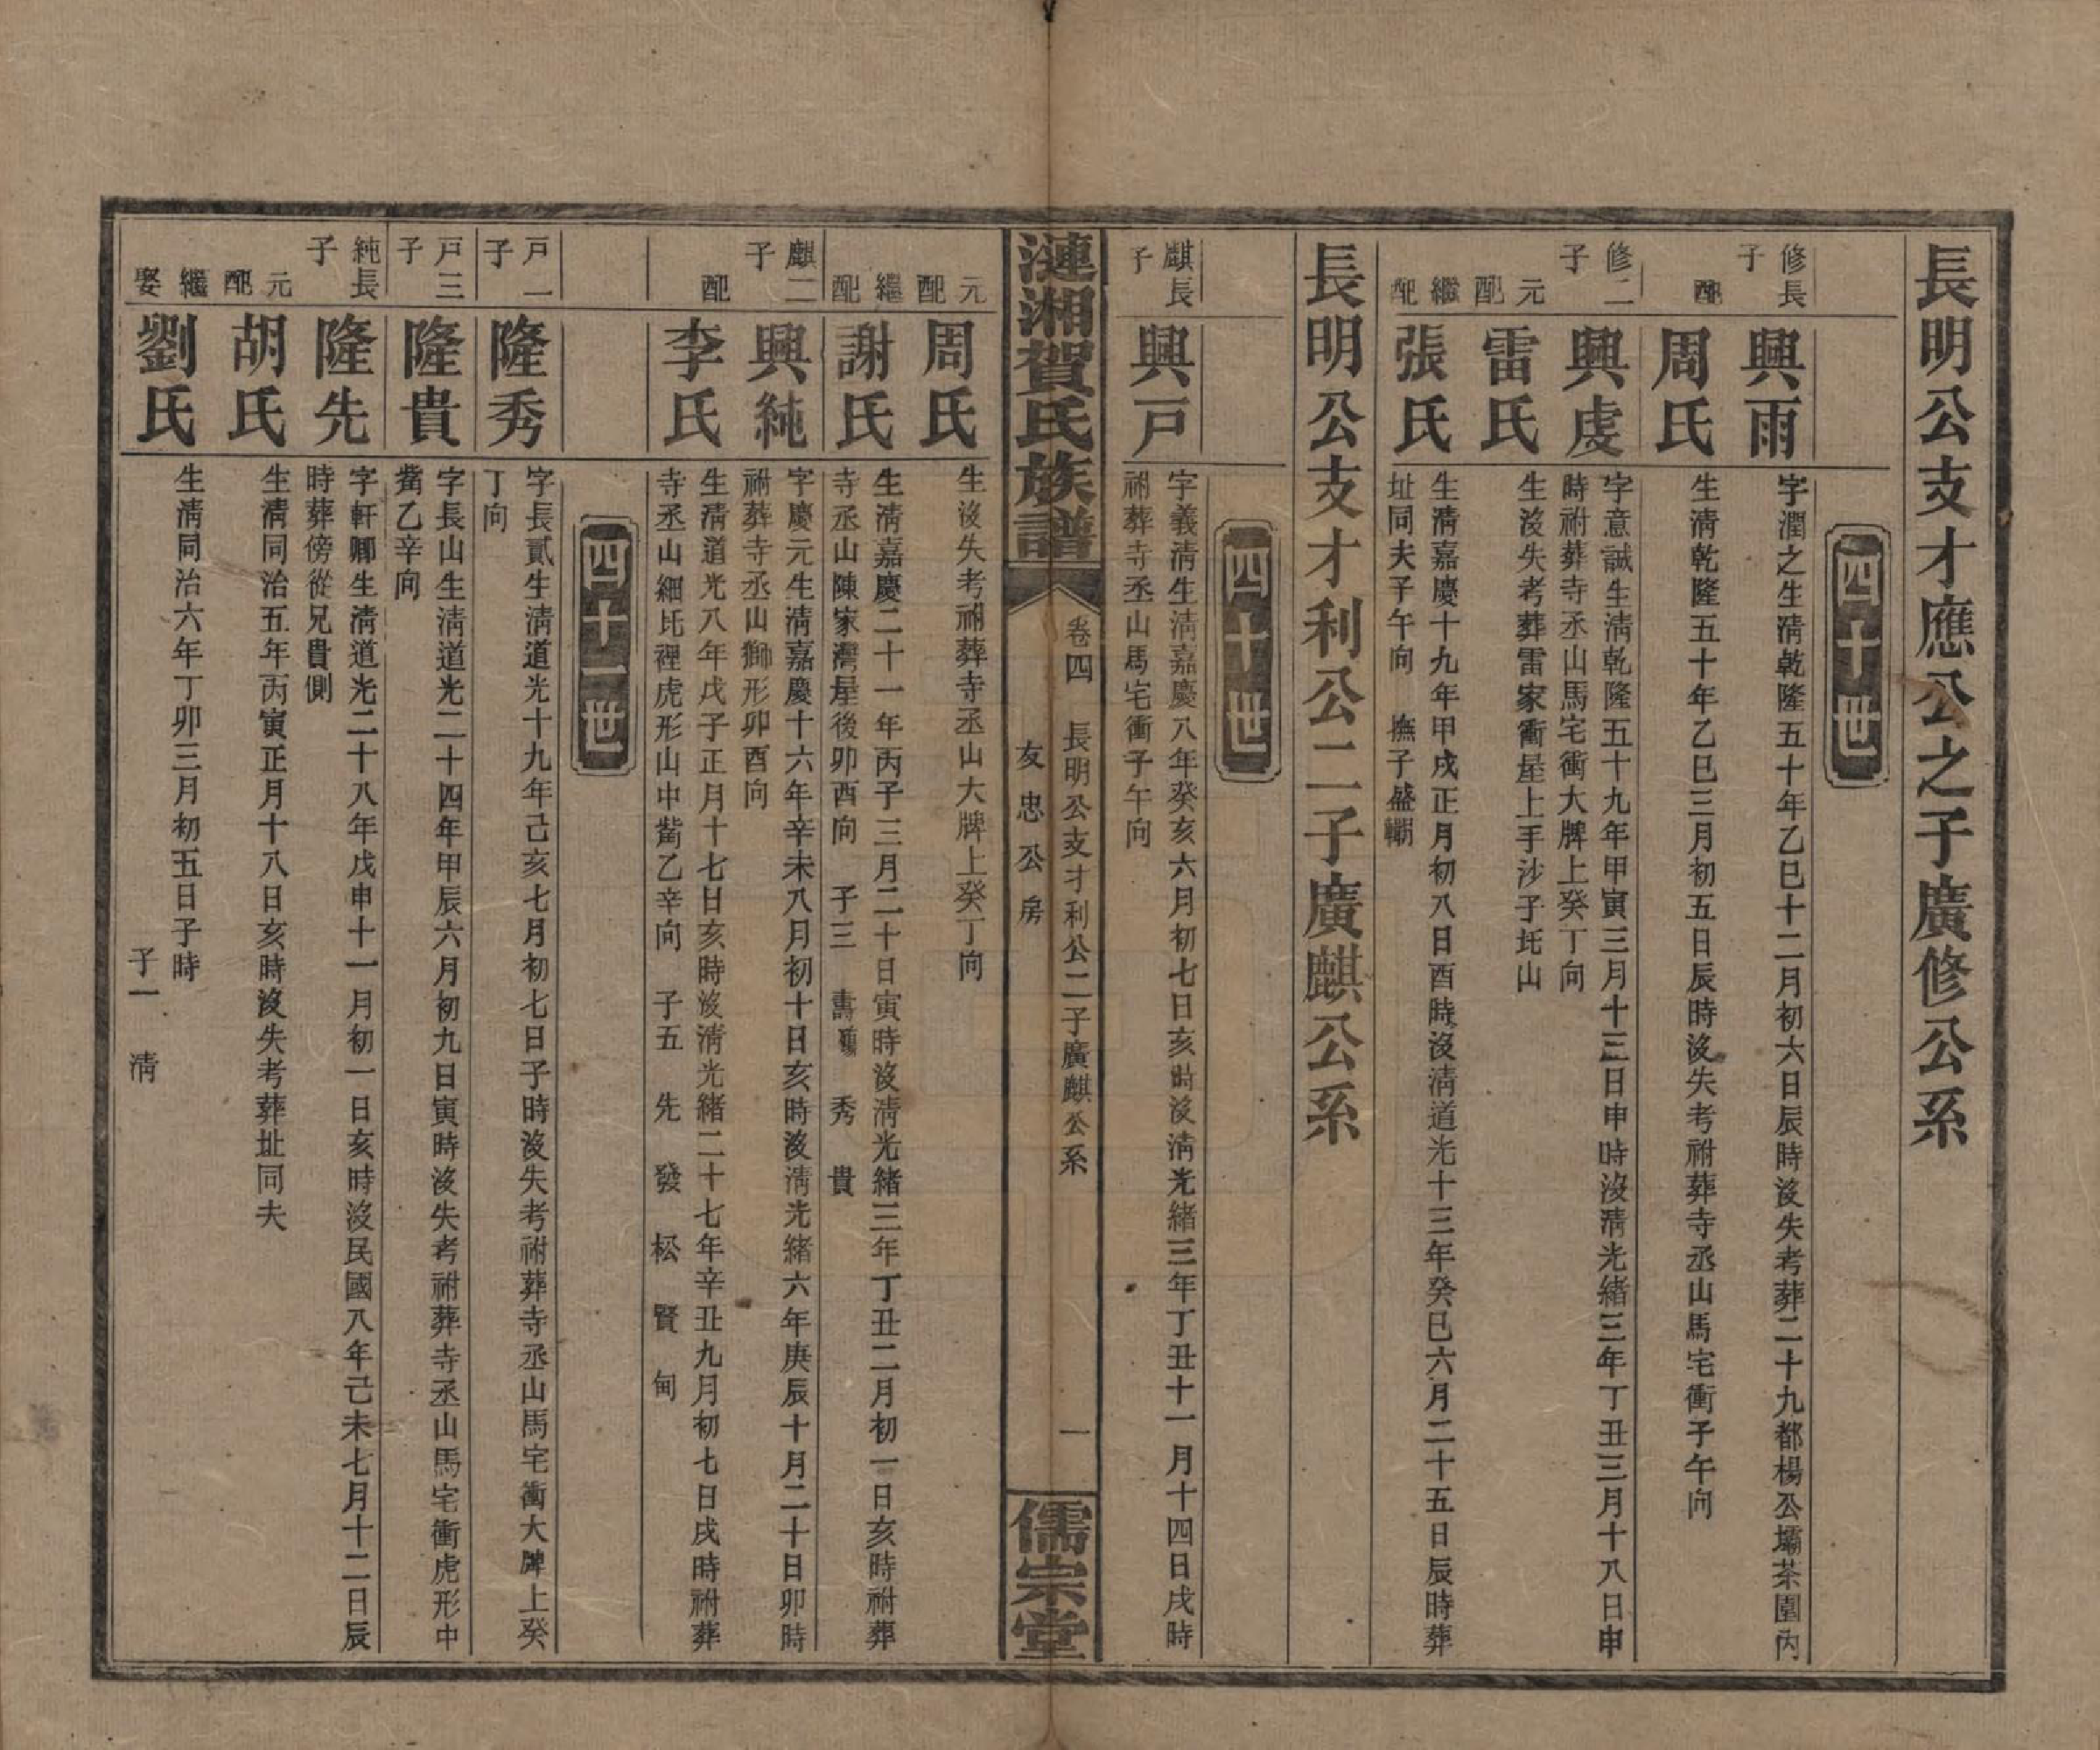 長明公支才應公之子廣修公系
四十世
修長子
興雨
字潤之生清乾隆五十年乙巳十二月初六日辰時沒失考葬二十九都楊公壩茶園內
配
周氏
生清乾隆五十年乙巳三月初五日辰時沒失考祔葬寺丞山馬宅衝子午向
修二子
興虔
字意誠生清乾隆五十九年甲寅三月十三日申時沒清光緒三年丁丑三月十八日申
時祔葬寺丞山馬宅衝大牌上癸丁向
元配
雷氏
生沒失考葬雷家衝屋上手沙子圫山
繼配
張氏
生清嘉慶十九年甲戌正月初八日酉時沒清道光十三年癸巳六月二十五日辰時葬
址同夫子午向 撫子盛
長明公支才利公二子廣麒公系
四十世
麒長子
興戸
字義清生清嘉慶八年癸亥六月初七日亥時沒清光緒三年丁丑十一月十四日戌時
祔葬寺丞山馬宅衝子午向
漣湘賀氏族譜
卷四 長明公支才利公二子廣麒公系 一
友忠公房
儒宗堂
元配
周氏
生沒失考祔葬寺丞山大牌上癸丁向
繼配
謝氏
生清嘉慶二十一年丙子三月二十日寅時沒清光緒三年丁丑二月初一日亥時祔葬
寺丞山陳家灣屋後卯酉向 子三 壽殤 秀 貴
麒二子
興純
字慶元生清嘉慶十六年辛未八月初十日亥時沒清光緒六年庚辰十月二十日卯時
祔葬寺丞山獅形卯酉向
配
李氏
生清道光八年戊子正月十七日亥時沒清光緒二十七年辛丑九月初七日戌時祔葬
寺丞山細圫裡虎形山中嘴乙辛向 子五 先 發 松 賢 甸
四十一世
戸一子
隆秀
字長貳生清道光十九年己亥七月初七日子時沒失考祔葬寺丞山馬宅衝大牌上癸
丁向
戸三子
隆貴
字長山生清道光二十四年甲辰六月初九日寅時沒失考祔葬寺丞山馬宅衝虎形中
嘴乙辛向
純長子
隆先
字軒卿生清道光二十八年戊申十一月初一日亥時沒民國八年己未七月十二日辰
時葬傍從兄貴側
元配
胡氏
生清同治五年丙寅正月十八日亥時沒失考葬址同夫
繼娶
劉氏
生清同治六年丁卯三月初五日子時
子一 清